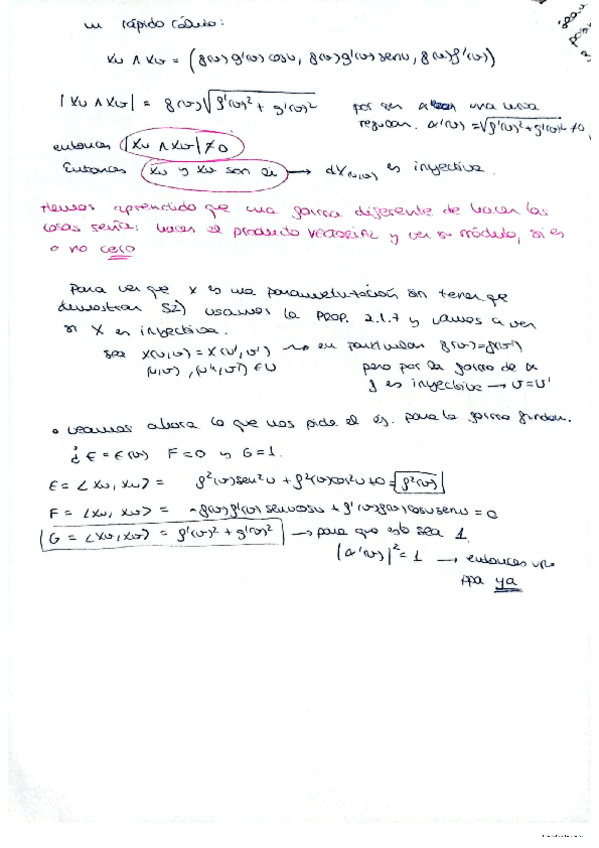 un rápido cálculo:
Xu ∧ Xv = (f(v)g'(v) cosu, f(v)g'(v) senu, f(v)f'(v))
|Xu ∧ Xv| = f(v)√(f'(v)² + g'(v)²) por ser una curva
regular. α'(v) = √(f'(v)²+g'(v)²) ≠ 0,
entonces |Xu ∧ Xv| ≠ 0
Entonces Xu y Xv son li → dX(u,v) es inyectiva.
Hemos aprendido que una forma diferente de hacer las
cosas sería: hacer el producto vectorial y ver su módulo, si es
o no cero
Para ver que X es una parametrización sin tener que
demostrar S2) usamos la PROP. 2.1.7 y vamos a ver
si X es inyectiva.
sea X(u,v) = X(u',v') → en particular f(v)=f(v')
(u,v), (u',v') ∈ U pero por la forma de
f es inyectiva → v=v'
• veamos ahora lo que nos pide el ej. para la forma fundam.
¿ E = E(v) F=0 y G=1.
E = <Xu, Xu> = f²(v)sen²u + f²(v)cos²u + 0 = f²(v)
F = <Xu, Xv> = -f(v)f'(v) senu cosu + f'(v)f(v) cosu senu = 0
G = <Xv, Xv> = f'(v)² + g'(v)² → para que esto sea 1.
|α'(v)|² = 1 → entonces
ppa ya